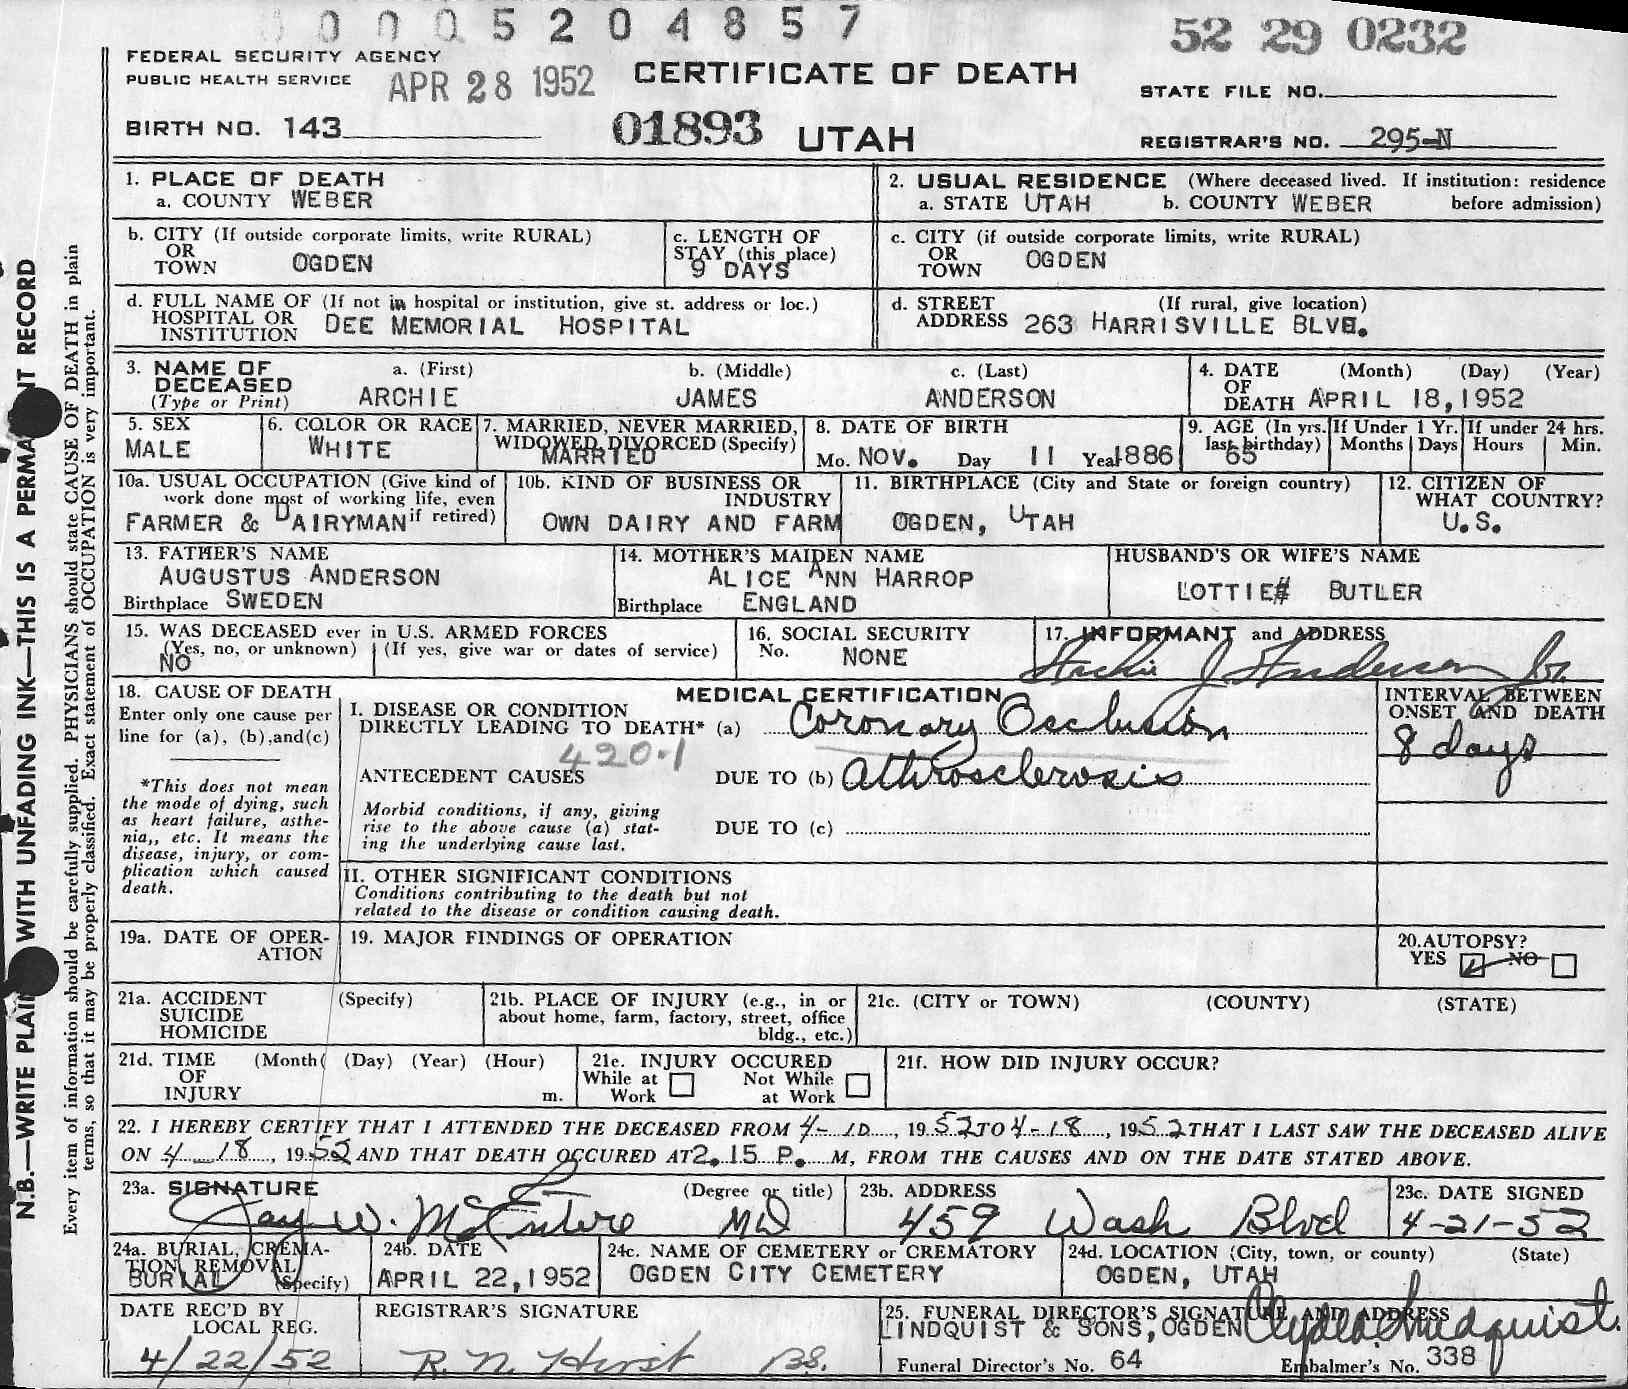 0005204857
52 29 0232
FEDERAL SECURITY AGENCY
PUBLIC HEALTH SERVICE
APR 28 1952
CERTIFICATE OF DEATH
STATE FILE NO.
BIRTH NO. 143
01893 UTAH
REGISTRAR'S NO. 295-N
N.B.—WRITE PLAIN WITH UNFADING INK—THIS IS A PERMANENT RECORD
Every item of information should be carefully supplied. PHYSICIANS should state CAUSE OF DEATH in plain
terms, so that it may be properly classified. Exact statement of OCCUPATION is very important.
1. PLACE OF DEATH
a. COUNTY WEBER
2. USUAL RESIDENCE (Where deceased lived. If institution: residence
a. STATE UTAH b. COUNTY WEBER before admission)
b. CITY (If outside corporate limits, write RURAL)
OR
TOWN OGDEN
c. LENGTH OF
STAY (this place)
9 DAYS
c. CITY (if outside corporate limits, write RURAL)
OR
TOWN OGDEN
d. FULL NAME OF (If not in hospital or institution, give st. address or loc.)
HOSPITAL OR
INSTITUTION DEE MEMORIAL HOSPITAL
d. STREET (If rural, give location)
ADDRESS 263 HARRISVILLE BLVD.
3. NAME OF
DECEASED
(Type or Print)
a. (First) b. (Middle) c. (Last)
ARCHIE JAMES ANDERSON
4. DATE (Month) (Day) (Year)
OF
DEATH APRIL 18,1952
5. SEX
MALE
6. COLOR OR RACE
WHITE
7. MARRIED, NEVER MARRIED,
WIDOWED, DIVORCED (Specify)
MARRIED
8. DATE OF BIRTH
Mo. NOV. Day 11 Year 1886
9. AGE (In yrs.
last birthday)
65
If Under 1 Yr.
Months Days
If under 24 hrs.
Hours Min.
10a. USUAL OCCUPATION (Give kind of
work done most of working life, even
if retired)
FARMER & DAIRYMAN
10b. KIND OF BUSINESS OR
INDUSTRY
OWN DAIRY AND FARM
11. BIRTHPLACE (City and State or foreign country)
OGDEN, UTAH
12. CITIZEN OF
WHAT COUNTRY?
U.S.
13. FATHER'S NAME
AUGUSTUS ANDERSON
Birthplace SWEDEN
14. MOTHER'S MAIDEN NAME
ALICE ANN HARROP
Birthplace ENGLAND
HUSBAND'S OR WIFE'S NAME
LOTTIE BUTLER
15. WAS DECEASED ever in U.S. ARMED FORCES
(Yes, no, or unknown) (If yes, give war or dates of service)
NO
16. SOCIAL SECURITY
No. NONE
17. INFORMANT and ADDRESS
Archie J Anderson Jr.
18. CAUSE OF DEATH
Enter only one cause per
line for (a), (b),and(c)
*This does not mean
the mode of dying, such
as heart failure, asthe-
nia,, etc. It means the
disease, injury, or com-
plication which caused
death.
MEDICAL CERTIFICATION
I. DISEASE OR CONDITION
DIRECTLY LEADING TO DEATH* (a) Coronary Occlusion
420.1
ANTECEDENT CAUSES DUE TO (b) Athrosclerosis
Morbid conditions, if any, giving
rise to the above cause (a) stat-
ing the underlying cause last.
DUE TO (c)
INTERVAL BETWEEN
ONSET AND DEATH
8 days
II. OTHER SIGNIFICANT CONDITIONS
Conditions contributing to the death but not
related to the disease or condition causing death.
19a. DATE OF OPER-
ATION
19. MAJOR FINDINGS OF OPERATION
20.AUTOPSY?
YES NO
21a. ACCIDENT (Specify)
SUICIDE
HOMICIDE
21b. PLACE OF INJURY (e.g., in or
about home, farm, factory, street, office
bldg., etc.)
21c. (CITY or TOWN) (COUNTY) (STATE)
21d. TIME (Month( (Day) (Year) (Hour)
OF
INJURY m.
21e. INJURY OCCURED
While at Not While
Work at Work
21f. HOW DID INJURY OCCUR?
22. I HEREBY CERTIFY THAT I ATTENDED THE DECEASED FROM 4-10, 1952 TO 4-18, 1952 THAT I LAST SAW THE DECEASED ALIVE
ON 4-18, 1952 AND THAT DEATH OCCURED AT 2.15 P. M, FROM THE CAUSES AND ON THE DATE STATED ABOVE.
23a. SIGNATURE (Degree or title)
Jay W. McEntire MD
23b. ADDRESS
459 Wash Blvd
23c. DATE SIGNED
4-21-52
24a. BURIAL, CREMA-
TION, REMOVAL
BURIAL (Specify)
24b. DATE
APRIL 22,1952
24c. NAME OF CEMETERY or CREMATORY
OGDEN CITY CEMETERY
24d. LOCATION (City, town, or county) (State)
OGDEN, UTAH
DATE REC'D BY
LOCAL REG.
4/22/52
REGISTRAR'S SIGNATURE
R. N. Hirst BS.
25. FUNERAL DIRECTOR'S SIGNATURE AND ADDRESS
LINDQUIST & SONS, OGDEN Lindquist
Funeral Director's No. 64 Embalmer's No. 338